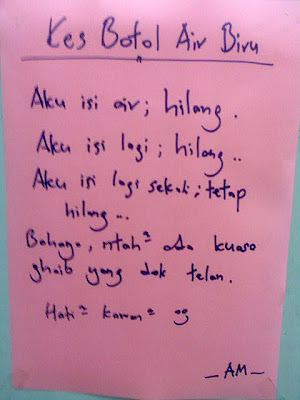 Kes Botol Air Biru
Aku isi air; hilang.
Aku isi lagi; hilang..
Aku isi lagi sekali; tetap
hilang...
Bahaya, ntah² Ada kuasa
ghaib yang dok telan.
Hati² kawan²
_AM_